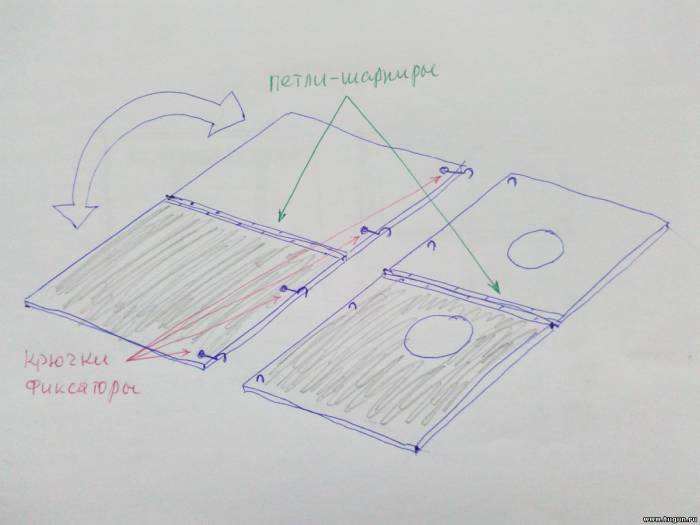 петли-шарниры
крючки
фиксаторы
www.tugun.ua